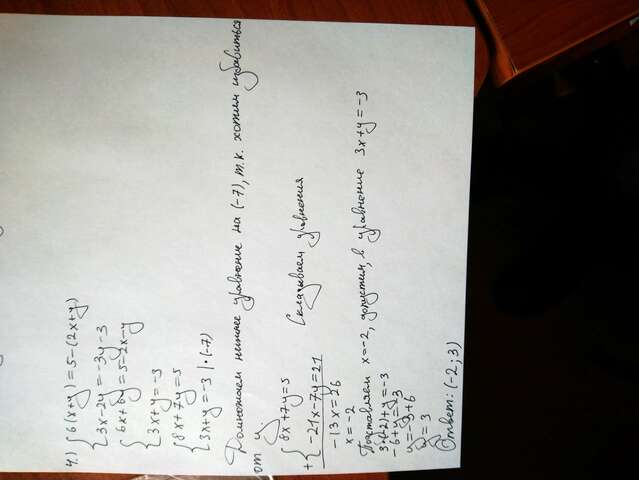 4.) { 6(x+y) = 5-(2x+y)
{ 3x-2y = -3y-3
{ 6x+6y = 5-2x-y
{ 3x+y = -3
{ 8x+7y = 5
{ 3x+y = -3 | ·(-7)
Домножаем нижнее уравнение на (-7), т.к. хотим избавиться
от y
+ { 8x+7y = 5
{ -21x-7y = 21 Складываем уравнения
-13x = 26
x = -2
Подставляем x = -2, допустим, в уравнение 3x+y = -3
3·(-2)+y = -3
-6+y = -3
y = -3+6
y = 3
Ответ: (-2; 3)